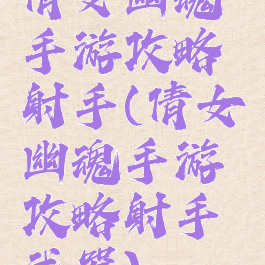 倩女幽魂
手游攻略
射手(倩女
幽魂手游
攻略射手
武器)